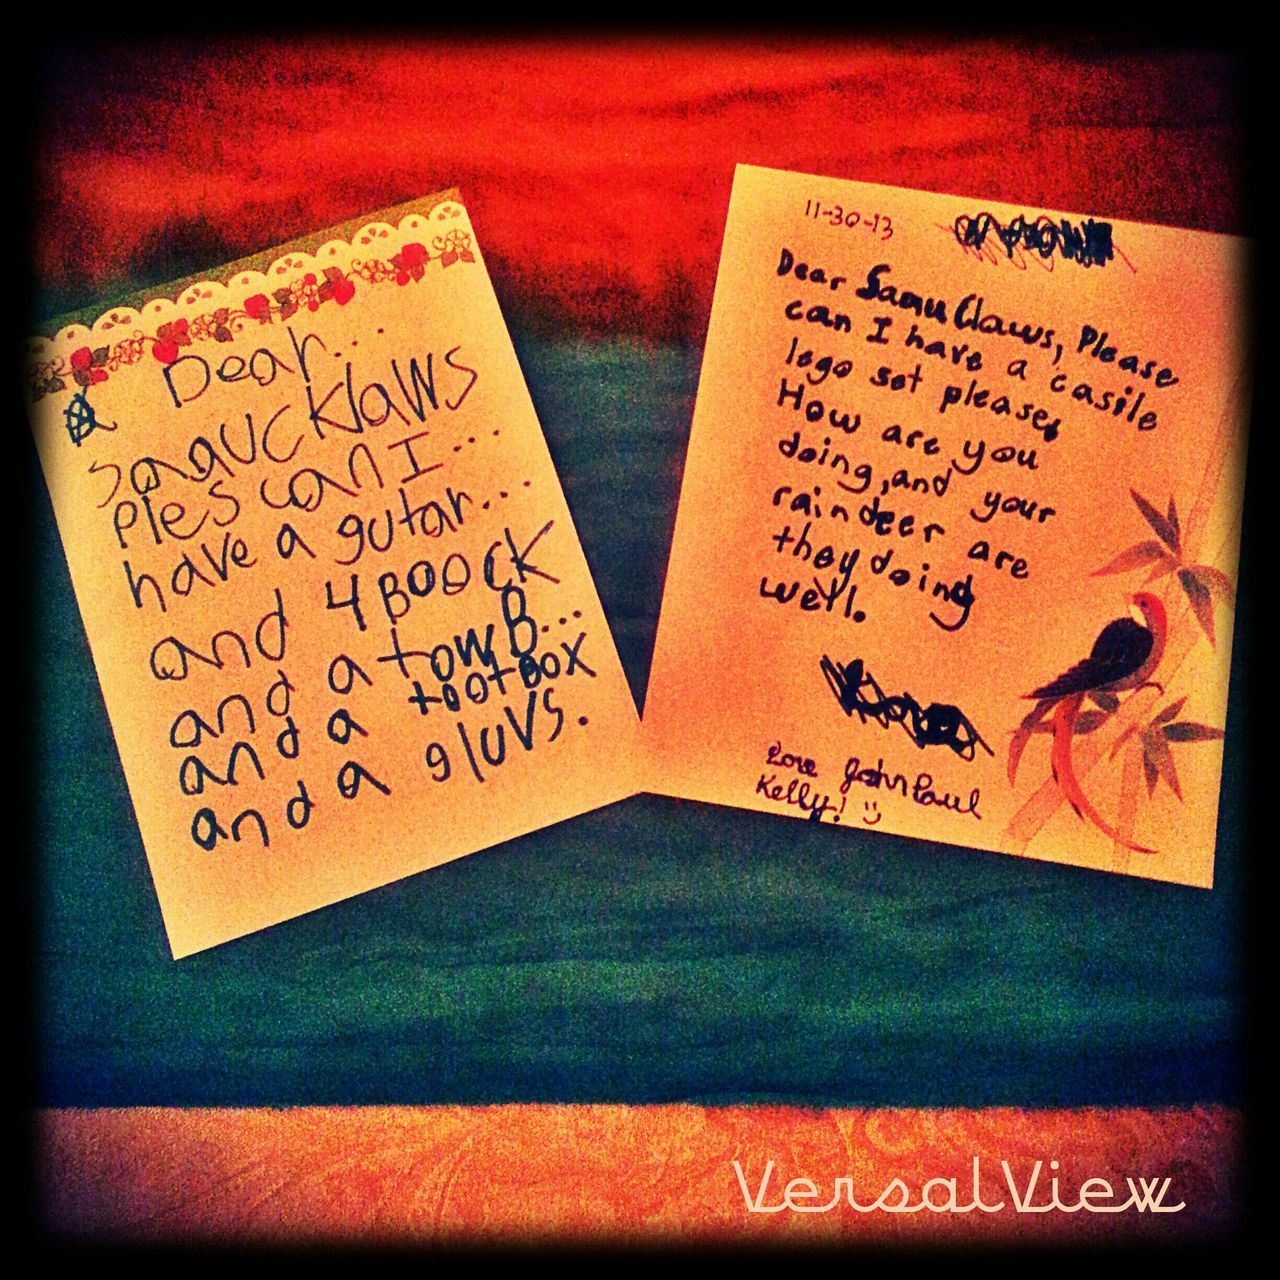 Dear...
saauc Klaws
ples can I...
have a gutar...
and 4 BOOCK
and a towB...
and a tootBox
and a gluvs.
11-30-13
Dear Samu Claws, Please
can I have a castle
lego set please,
How are you
doing, and your
raindeer are
they doing
well.
Love John Paul
Kelly! :)
VersalView